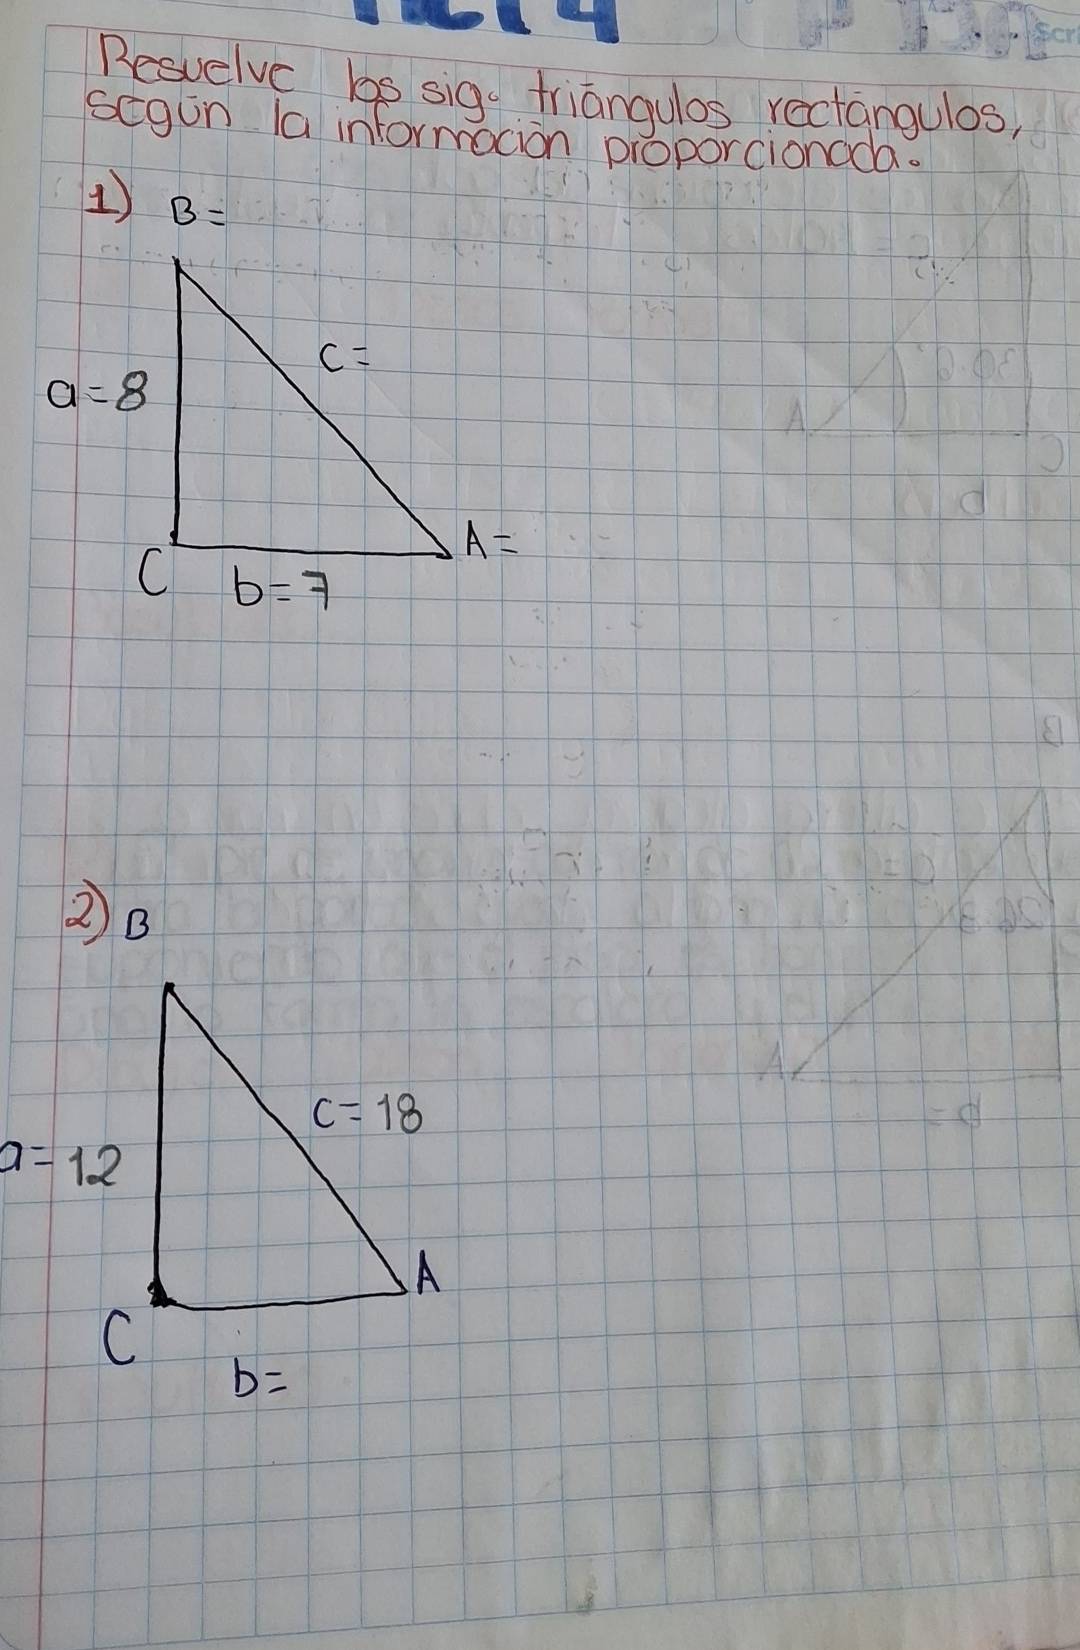 Resuelve los sig. triángulos rectángulos,
según la información proporcionada.
1) B=
c=
a=8
A=
C
b=7
2) B
c=18
a=12
A
C
b=